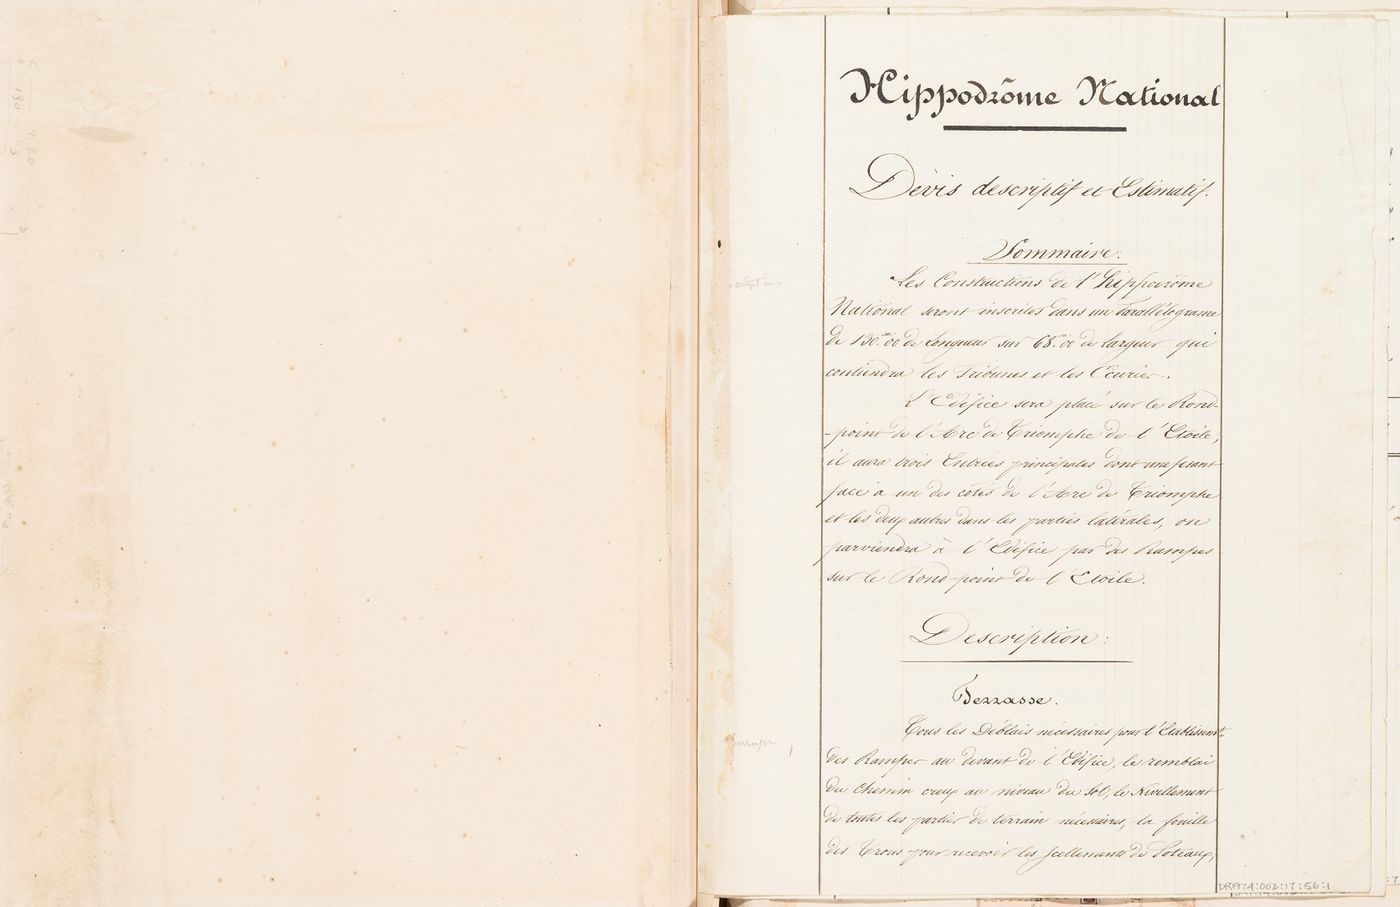 Hippodrôme National
Devis descriptif et Estimatif.
Sommaire:
Les Constructions de l'hippodrôme
National seront inscrites dans un Parallélograme
de 130.m00 de Longueur sur 68.m00 de largeur qui
contiendra les Tribunes et les Ecuries.
L'Edifice sera placé sur le Rond-
-point de l'Arc de Triomphe de l'Etoile,
il aura trois Entrées principales dont une fesant
face à un des côtés de l'Arc de Triomphe
et les deux autres dans les parties latérales, on
parviendra à l'Edifice par des Rampes
sur le Rond-point de l'Etoile.
Description:
Terrasse.
Tous les Déblais nécessaires pour l'Etablissemt.
des Rampes au devant de l'Edifice, le remblai
du Chemin creux au niveau du Sol, le Nivellement
de toutes les parties de terrain nécessaires, la fouille
des Trous pour recevoir les scellements de Poteaux,
DR1974:002:17:56:1